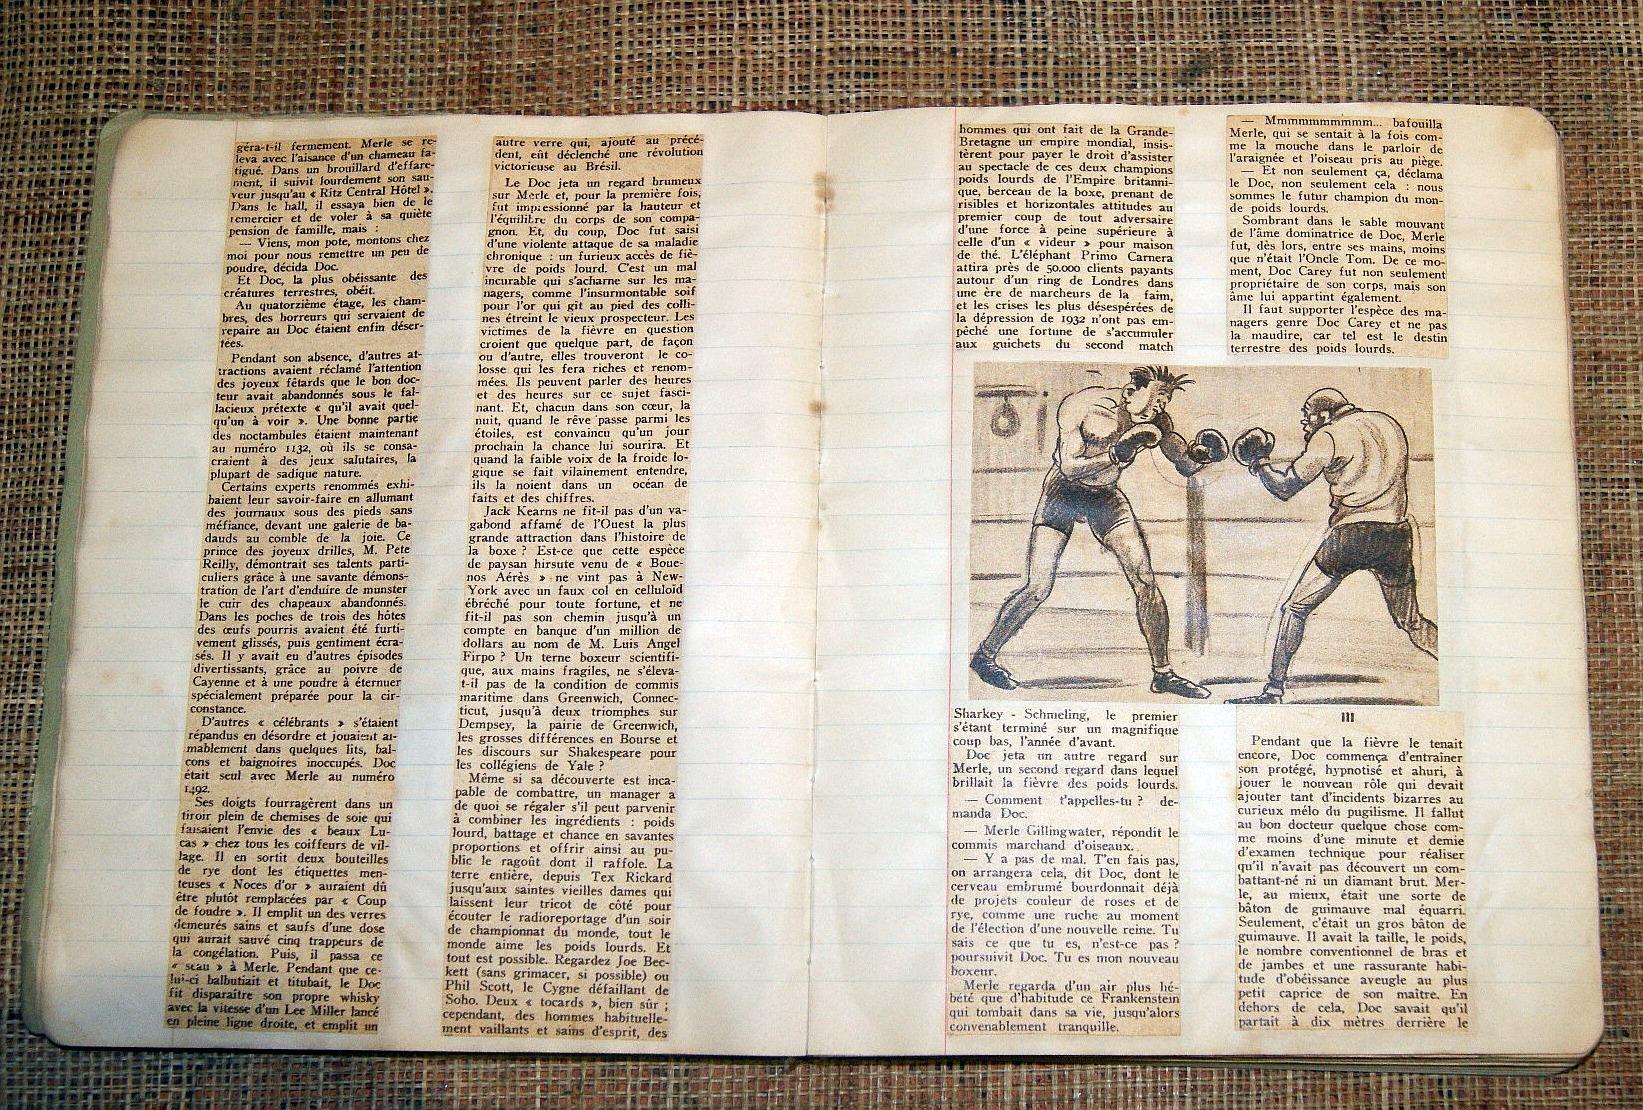 géra-t-il fermement. Merle se re-
leva avec l'aisance d'un chameau fa-
tigué. Dans un brouillard d'effare-
ment, il suivit lourdement son sau-
veur jusqu'au « Ritz Central Hôtel ».
Dans le hall, il essaya bien de le
remercier et de voler à sa quiète
pension de famille, mais :
— Viens, mon pote, montons chez
moi pour nous remettre un peu de
poudre, décida Doc.
Et Doc, la plus obéissante des
créatures terrestres, obéit.
Au quatorzième étage, les cham-
bres, des horreurs qui servaient de
repaire au Doc étaient enfin déser-
tées.
Pendant son absence, d'autres at-
tractions avaient réclamé l'attention
des joyeux fêtards que le bon doc-
teur avait abandonnés sous le fal-
lacieux prétexte « qu'il avait quel-
qu'un à voir ». Une bonne partie
des noctambules étaient maintenant
au numéro 1132, où ils se consa-
craient à des jeux salutaires, la
plupart de sadique nature.
Certains experts renommés exhi-
baient leur savoir-faire en allumant
des journaux sous des pieds sans
méfiance, devant une galerie de ba-
dauds au comble de la joie. Ce
prince des joyeux drilles, M. Pete
Reilly, démontrait ses talents parti-
culiers grâce à une savante démons-
tration de l'art d'enduire de munster
le cuir des chapeaux abandonnés.
Dans les poches de trois des hôtes
des œufs pourris avaient été furti-
vement glissés, puis gentiment écra-
sés. Il y avait eu d'autres épisodes
divertissants, grâce au poivre de
Cayenne et à une poudre à éternuer
spécialement préparée pour la cir-
constance.
D'autres « célébrants » s'étaient
répandus en désordre et jouaient ai-
mablement dans quelques lits, bal-
cons et baignoires inoccupés. Doc
était seul avec Merle au numéro
1492.
Ses doigts fourragèrent dans un
tiroir plein de chemises de soie qui
faisaient l'envie des « beaux Lu-
cas » chez tous les coiffeurs de vil-
lage. Il en sortit deux bouteilles
de rye dont les étiquettes men-
teuses « Noces d'or » auraient dû
être plutôt remplacées par « Coup
de foudre ». Il emplit un des verres
demeurés sains et saufs d'une dose
qui aurait sauvé cinq trappeurs de
la congélation. Puis, il passa ce
« seau » à Merle. Pendant que ce-
lui-ci balbutiait et titubait, le Doc
fit disparaître son propre whisky
avec la vitesse d'un Lee Miller lancé
en pleine ligne droite, et emplit un
autre verre qui, ajouté au précé-
dent, eût déclenché une révolution
victorieuse au Brésil.
Le Doc jeta un regard brumeux
sur Merle et, pour la première fois,
fut impressionné par la hauteur et
l'équilibre du corps de son compa-
gnon. Et, du coup, Doc fut saisi
d'une violente attaque de sa maladie
chronique : un furieux accès de fiè-
vre de poids lourd. C'est un mal
incurable qui s'acharne sur les ma-
nagers, comme l'insurmontable soif
pour l'or qui gît au pied des colli-
nes étreint le vieux prospecteur. Les
victimes de la fièvre en question
croient que quelque part, de façon
ou d'autre, elles trouveront le co-
losse qui les fera riches et renom-
mées. Ils peuvent parler des heures
et des heures sur ce sujet fasci-
nant. Et, chacun dans son cœur, la
nuit, quand le rêve passe parmi les
étoiles, est convaincu qu'un jour
prochain la chance lui sourira. Et
quand la faible voix de la froide lo-
gique se fait vilainement entendre,
ils la noient dans un océan de
faits et des chiffres.
Jack Kearns ne fit-il pas d'un va-
gabond affamé de l'Ouest la plus
grande attraction dans l'histoire de
la boxe ? Est-ce que cette espèce
de paysan hirsute venu de « Boue-
nos Aérès » ne vint pas à New-
York avec un faux col en celluloïd
ébréché pour toute fortune, et ne
fit-il pas son chemin jusqu'à un
compte en banque d'un million de
dollars au nom de M. Luis Angel
Firpo ? Un terne boxeur scientifi-
que, aux mains fragiles, ne s'éleva-
t-il pas de la condition de commis
maritime dans Greenwich, Connec-
ticut, jusqu'à deux triomphes sur
Dempsey, la pairie de Greenwich,
les grosses différences en Bourse et
les discours sur Shakespeare pour
les collégiens de Yale ?
Même si sa découverte est inca-
pable de combattre, un manager a
de quoi se régaler s'il peut parvenir
à combiner les ingrédients : poids
lourd, battage et chance en savantes
proportions et offrir ainsi au pu-
blic le ragoût dont il raffole. La
terre entière, depuis Tex Rickard
jusqu'aux saintes vieilles dames qui
laissent leur tricot de côté pour
écouter le radioreportage d'un soir
de championnat du monde, tout le
monde aime les poids lourds. Et
tout est possible. Regardez Joe Bec-
kett (sans grimacer, si possible) ou
Phil Scott, le Cygne défaillant de
Soho. Deux « tocards », bien sûr ;
cependant, des hommes habituelle-
ment vaillants et sains d'esprit, des
hommes qui ont fait de la Grande-
Bretagne un empire mondial, insis-
tèrent pour payer le droit d'assister
au spectacle de ces deux champions
poids lourds de l'Empire britanni-
que, berceau de la boxe, prenant de
risibles et horizontales attitudes au
premier coup de tout adversaire
d'une force à peine supérieure à
celle d'un « videur » pour maison
de thé. L'éléphant Primo Carnera
attira près de 50.000 clients payants
autour d'un ring de Londres dans
une ère de marcheurs de la faim,
et les crises les plus désespérées de
la dépression de 1932 n'ont pas em-
pêché une fortune de s'accumuler
aux guichets du second match
Sharkey - Schmeling, le premier
s'étant terminé sur un magnifique
coup bas, l'année d'avant.
Doc jeta un autre regard sur
Merle, un second regard dans lequel
brillait la fièvre des poids lourds.
— Comment t'appelles-tu ? de-
manda Doc.
— Merle Gillingwater, répondit le
commis marchand d'oiseaux.
— Y a pas de mal. T'en fais pas,
on arrangera cela, dit Doc, dont le
cerveau embrumé bourdonnait déjà
de projets couleur de roses et de
rye, comme une ruche au moment
de l'élection d'une nouvelle reine. Tu
sais ce que tu es, n'est-ce pas ?
poursuivit Doc. Tu es mon nouveau
boxeur.
Merle regarda d'un air plus hé-
bété que d'habitude ce Frankenstein
qui tombait dans sa vie, jusqu'alors
convenablement tranquille.
— Mmmmmmmmm... bafouilla
Merle, qui se sentait à la fois com-
me la mouche dans le parloir de
l'araignée et l'oiseau pris au piège.
— Et non seulement ça, déclama
le Doc, non seulement cela : nous
sommes le futur champion du mon-
de poids lourds.
Sombrant dans le sable mouvant
de l'âme dominatrice de Doc, Merle
fut, dès lors, entre ses mains, moins
que n'était l'Oncle Tom. De ce mo-
ment, Doc Carey fut non seulement
propriétaire de son corps, mais son
âme lui appartint également.
Il faut supporter l'espèce des ma-
nagers genre Doc Carey et ne pas
la maudire, car tel est le destin
terrestre des poids lourds.
III
Pendant que la fièvre le tenait
encore, Doc commença d'entraîner
son protégé, hypnotisé et ahuri, à
jouer le nouveau rôle qui devait
ajouter tant d'incidents bizarres au
curieux mélo du pugilisme. Il fallut
au bon docteur quelque chose com-
me moins d'une minute et demie
d'examen technique pour réaliser
qu'il n'avait pas découvert un com-
battant-né ni un diamant brut. Mer-
le, au mieux, était une sorte de
bâton de guimauve mal équarri.
Seulement, c'était un gros bâton de
guimauve. Il avait la taille, le poids,
le nombre conventionnel de bras et
de jambes et une rassurante habi-
tude d'obéissance aveugle au plus
petit caprice de son maître. En
dehors de cela, Doc savait qu'il
partait à dix mètres derrière le